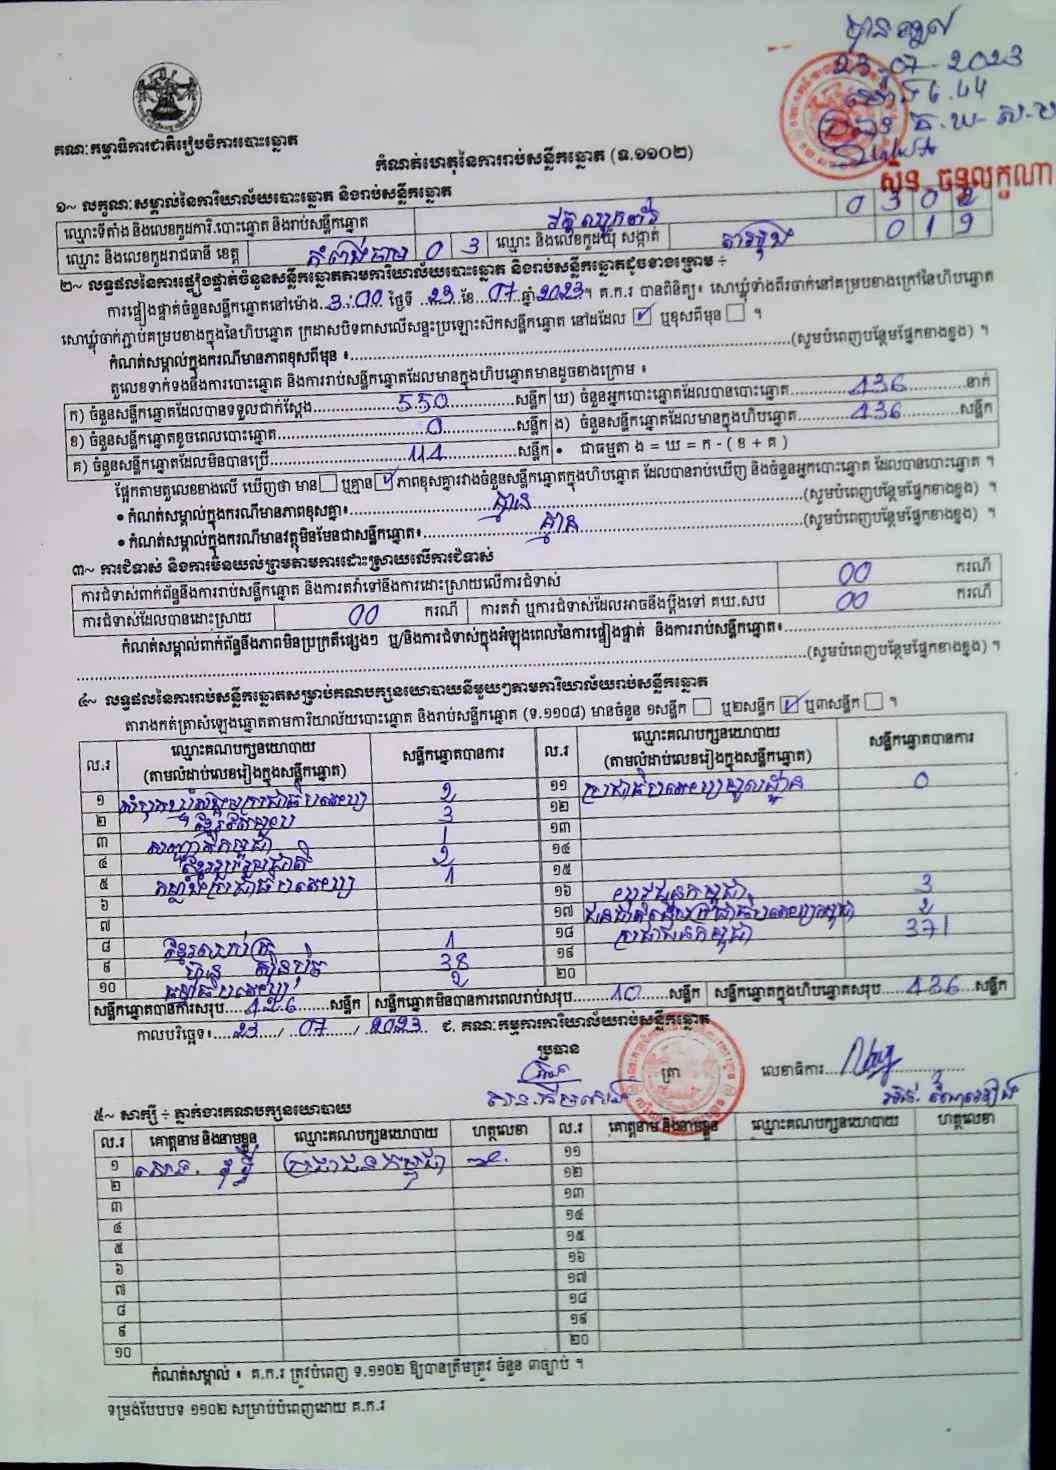 បានទទួល
23-07-2023
ម៉ោង 6.44
គណៈកម្មាធិការជាតិរៀបចំការបោះឆ្នោត
កំណត់ហេតុនៃការរាប់សន្លឹកឆ្នោត (ទ.១១០២)
ស៊ិន ចន្ទលក្ខណា
១~ លក្ខណៈសម្គាល់នៃការិយាល័យបោះឆ្នោត និងរាប់សន្លឹកឆ្នោត
ឈ្មោះទីតាំង និងលេខកូដការិ.បោះឆ្នោត និងរាប់សន្លឹកឆ្នោត 0302
ឈ្មោះ និងលេខកូដរាជធានី ខេត្ត កំពង់ចាម 03 ឈ្មោះ និងលេខកូដឃុំ សង្កាត់ 019
២~ លទ្ធផលនៃការផ្ទៀងផ្ទាត់ចំនួនសន្លឹកឆ្នោតតាមការិយាល័យបោះឆ្នោត និងរាប់សន្លឹកឆ្នោតដូចខាងក្រោម ÷
ការផ្ទៀងផ្ទាត់ចំនួនសន្លឹកឆ្នោតនៅម៉ោង 3:00 ថ្ងៃទី 23 ខែ 07 ឆ្នាំ 2023។ គ.ក.រ បានពិនិត្យ៖ សោឃ្លុំទាំងពីរចាក់នៅគម្របខាងក្រៅនៃហិបឆ្នោត
សោឃ្លុំចាក់ភ្ជាប់គម្របខាងក្នុងនៃហិបឆ្នោត ក្រដាសបិទពាសលើសន្ទះប្រឡោះស៊កសន្លឹកឆ្នោត នៅដដែល ☑ ឬខុសពីមុន ☐ ។
កំណត់សម្គាល់ក្នុងករណីមានភាពខុសពីមុន ៖ (សូមបំពេញបន្ថែមផ្នែកខាងខ្នង) ។
តួលេខទាក់ទងនឹងការបោះឆ្នោត និងការរាប់សន្លឹកឆ្នោតដែលមានក្នុងហិបឆ្នោតមានដូចខាងក្រោម ៖
ក) ចំនួនសន្លឹកឆ្នោតដែលបានទទួលជាក់ស្ដែង 550 សន្លឹក ឃ) ចំនួនអ្នកបោះឆ្នោតដែលបានបោះឆ្នោត 436 នាក់
ខ) ចំនួនសន្លឹកឆ្នោតខូចពេលបោះឆ្នោត 0 សន្លឹក ង) ចំនួនសន្លឹកឆ្នោតដែលមានក្នុងហិបឆ្នោត 436 សន្លឹក
គ) ចំនួនសន្លឹកឆ្នោតដែលមិនបានប្រើ 114 សន្លឹក • ជាធម្មតា ង = ឃ = ក - ( ខ + គ )
ផ្អែកតាមតួលេខខាងលើ ឃើញថា មាន ☐ ឬគ្មាន ☑ ភាពខុសគ្នារវាងចំនួនសន្លឹកឆ្នោតក្នុងហិបឆ្នោត ដែលបានរាប់ឃើញ និងចំនួនអ្នកបោះឆ្នោត ដែលបានបោះឆ្នោត ។
• កំណត់សម្គាល់ក្នុងករណីមានភាពខុសគ្នា៖ គ្មាន (សូមបំពេញបន្ថែមផ្នែកខាងខ្នង) ។
• កំណត់សម្គាល់ក្នុងករណីមានវត្ថុមិនមែនជាសន្លឹកឆ្នោត៖ គ្មាន (សូមបំពេញបន្ថែមផ្នែកខាងខ្នង) ។
៣~ ការជំទាស់ និងការមិនយល់ព្រមតាមការដោះស្រាយលើការជំទាស់
ការជំទាស់ពាក់ព័ន្ធនឹងការរាប់សន្លឹកឆ្នោត និងការតវ៉ាទៅនឹងការដោះស្រាយលើការជំទាស់ 00 ករណី
ការជំទាស់ដែលបានដោះស្រាយ 00 ករណី ការតវ៉ា ឬការជំទាស់ដែលអាចនឹងប្ដឹងទៅ គឃ.សប 00 ករណី
កំណត់សម្គាល់ពាក់ព័ន្ធនឹងភាពមិនប្រក្រតីផ្សេងៗ ឬ/និងការជំទាស់ក្នុងអំឡុងពេលនៃការផ្ទៀងផ្ទាត់ និងការរាប់សន្លឹកឆ្នោត៖
(សូមបំពេញបន្ថែមផ្នែកខាងខ្នង) ។
៤~ លទ្ធផលនៃការរាប់សន្លឹកឆ្នោតសម្រាប់គណបក្សនយោបាយនីមួយៗតាមការិយាល័យរាប់សន្លឹកឆ្នោត
តារាងកត់ត្រាសំឡេងឆ្នោតតាមការិយាល័យបោះឆ្នោត និងរាប់សន្លឹកឆ្នោត (ទ.១១០៨) មានចំនួន ១សន្លឹក ☐ ឬ២សន្លឹក ☑ ឬ៣សន្លឹក ☐ ។
ល.រ ឈ្មោះគណបក្សនយោបាយ (តាមលំដាប់លេខរៀងក្នុងសន្លឹកឆ្នោត) សន្លឹកឆ្នោតបានការ ល.រ ឈ្មោះគណបក្សនយោបាយ (តាមលំដាប់លេខរៀងក្នុងសន្លឹកឆ្នោត) សន្លឹកឆ្នោតបានការ
១ សំបុកឃ្មុំសង្គមប្រជាធិបតេយ្យ 2 ១១ 0
២ ខ្មែររួបរួម 3 ១២
៣ កម្ពុជា 1 ១៣
៤ ខ្មែររួបរួមជាតិ 2 ១៤
៥ កម្លាំងប្រជាធិបតេយ្យ 1 ១៥
៦ ១៦ យុវជនកម្ពុជា 3
៧ ១៧ 2
៨ 1 ១៨ ប្រជាជនកម្ពុជា 371
៩ ហ៊្វុនស៊ិនប៉ិច 38 ១៩
១០ ធម្មាធិបតេយ្យ 2 ២០
សន្លឹកឆ្នោតបានការសរុប 426 សន្លឹក សន្លឹកឆ្នោតមិនបានការពេលរាប់សរុប 10 សន្លឹក សន្លឹកឆ្នោតក្នុងហិបឆ្នោតសរុប 436 សន្លឹក
កាលបរិច្ឆេទ៖ 23 / 07 / 2023 ជ. គណៈកម្មការការិយាល័យរាប់សន្លឹកឆ្នោត
ប្រធាន ត្រា លេខាធិការ
៥~ សាក្សី ÷ ភ្នាក់ងារគណបក្សនយោបាយ
ល.រ គោត្តនាម និងនាមខ្លួន ឈ្មោះគណបក្សនយោបាយ ហត្ថលេខា ល.រ គោត្តនាម និងនាមខ្លួន ឈ្មោះគណបក្សនយោបាយ ហត្ថលេខា
១ ប្រជាជនកម្ពុជា ១១
២ ១២
៣ ១៣
៤ ១៤
៥ ១៥
៦ ១៦
៧ ១៧
៨ ១៨
៩ ១៩
១០ ២០
កំណត់សម្គាល់ ៖ គ.ក.រ ត្រូវបំពេញ ទ.១១០២ ឱ្យបានត្រឹមត្រូវ ចំនួន ៣ច្បាប់ ។
ទម្រង់បែបបទ ១១០២ សម្រាប់បំពេញដោយ គ.ក.រ